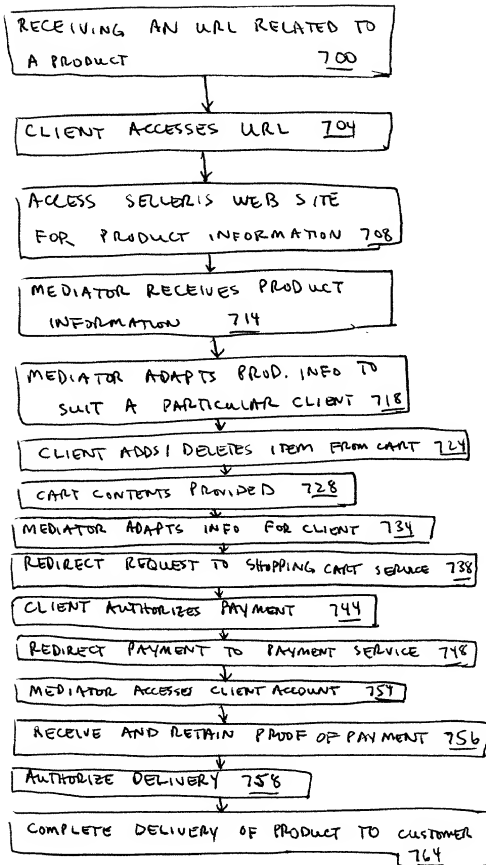 RECEIVING AN URL RELATED TO
A PRODUCT 700
CLIENT ACCESSES URL 704
ACCESS SELLER'S WEB SITE
FOR PRODUCT INFORMATION 708
MEDIATOR RECEIVES PRODUCT
INFORMATION 714
MEDIATOR ADAPTS PROD. INFO TO
SUIT A PARTICULAR CLIENT 718
CLIENT ADDS/DELETES ITEM FROM CART 724
CART CONTENTS PROVIDED 728
MEDIATOR ADAPTS INFO FOR CLIENT 734
REDIRECT REQUEST TO SHOPPING CART SERVICE 738
CLIENT AUTHORIZES PAYMENT 744
REDIRECT PAYMENT TO PAYMENT SERVICE 748
MEDIATOR ACCESSES CLIENT ACCOUNT 754
RECEIVE AND RETAIN PROOF OF PAYMENT 756
AUTHORIZE DELIVERY 758
COMPLETE DELIVERY OF PRODUCT TO CUSTOMER
764